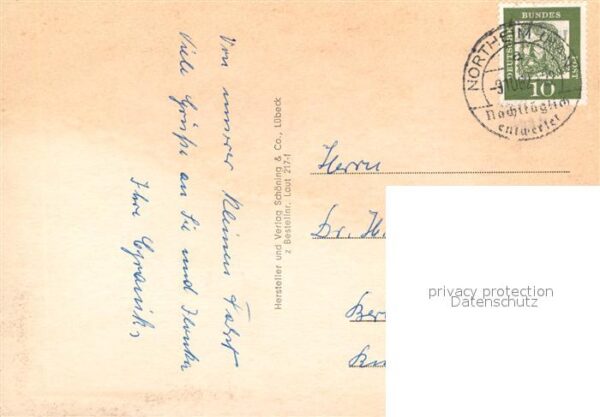 Von unserer kleinen Fahrt
Viele Grüße an Sie und Ilonka
Ihre
Hersteller und Verlag Schöning & Co., Lübeck
z Bestellnr. Laut 217-f
DEUTSCHE BUNDESPOST
10
NORTHEIM
Nachträglich
entwertet
Herrn
Dr. H.
Ber
privacy protection
Datenschutz